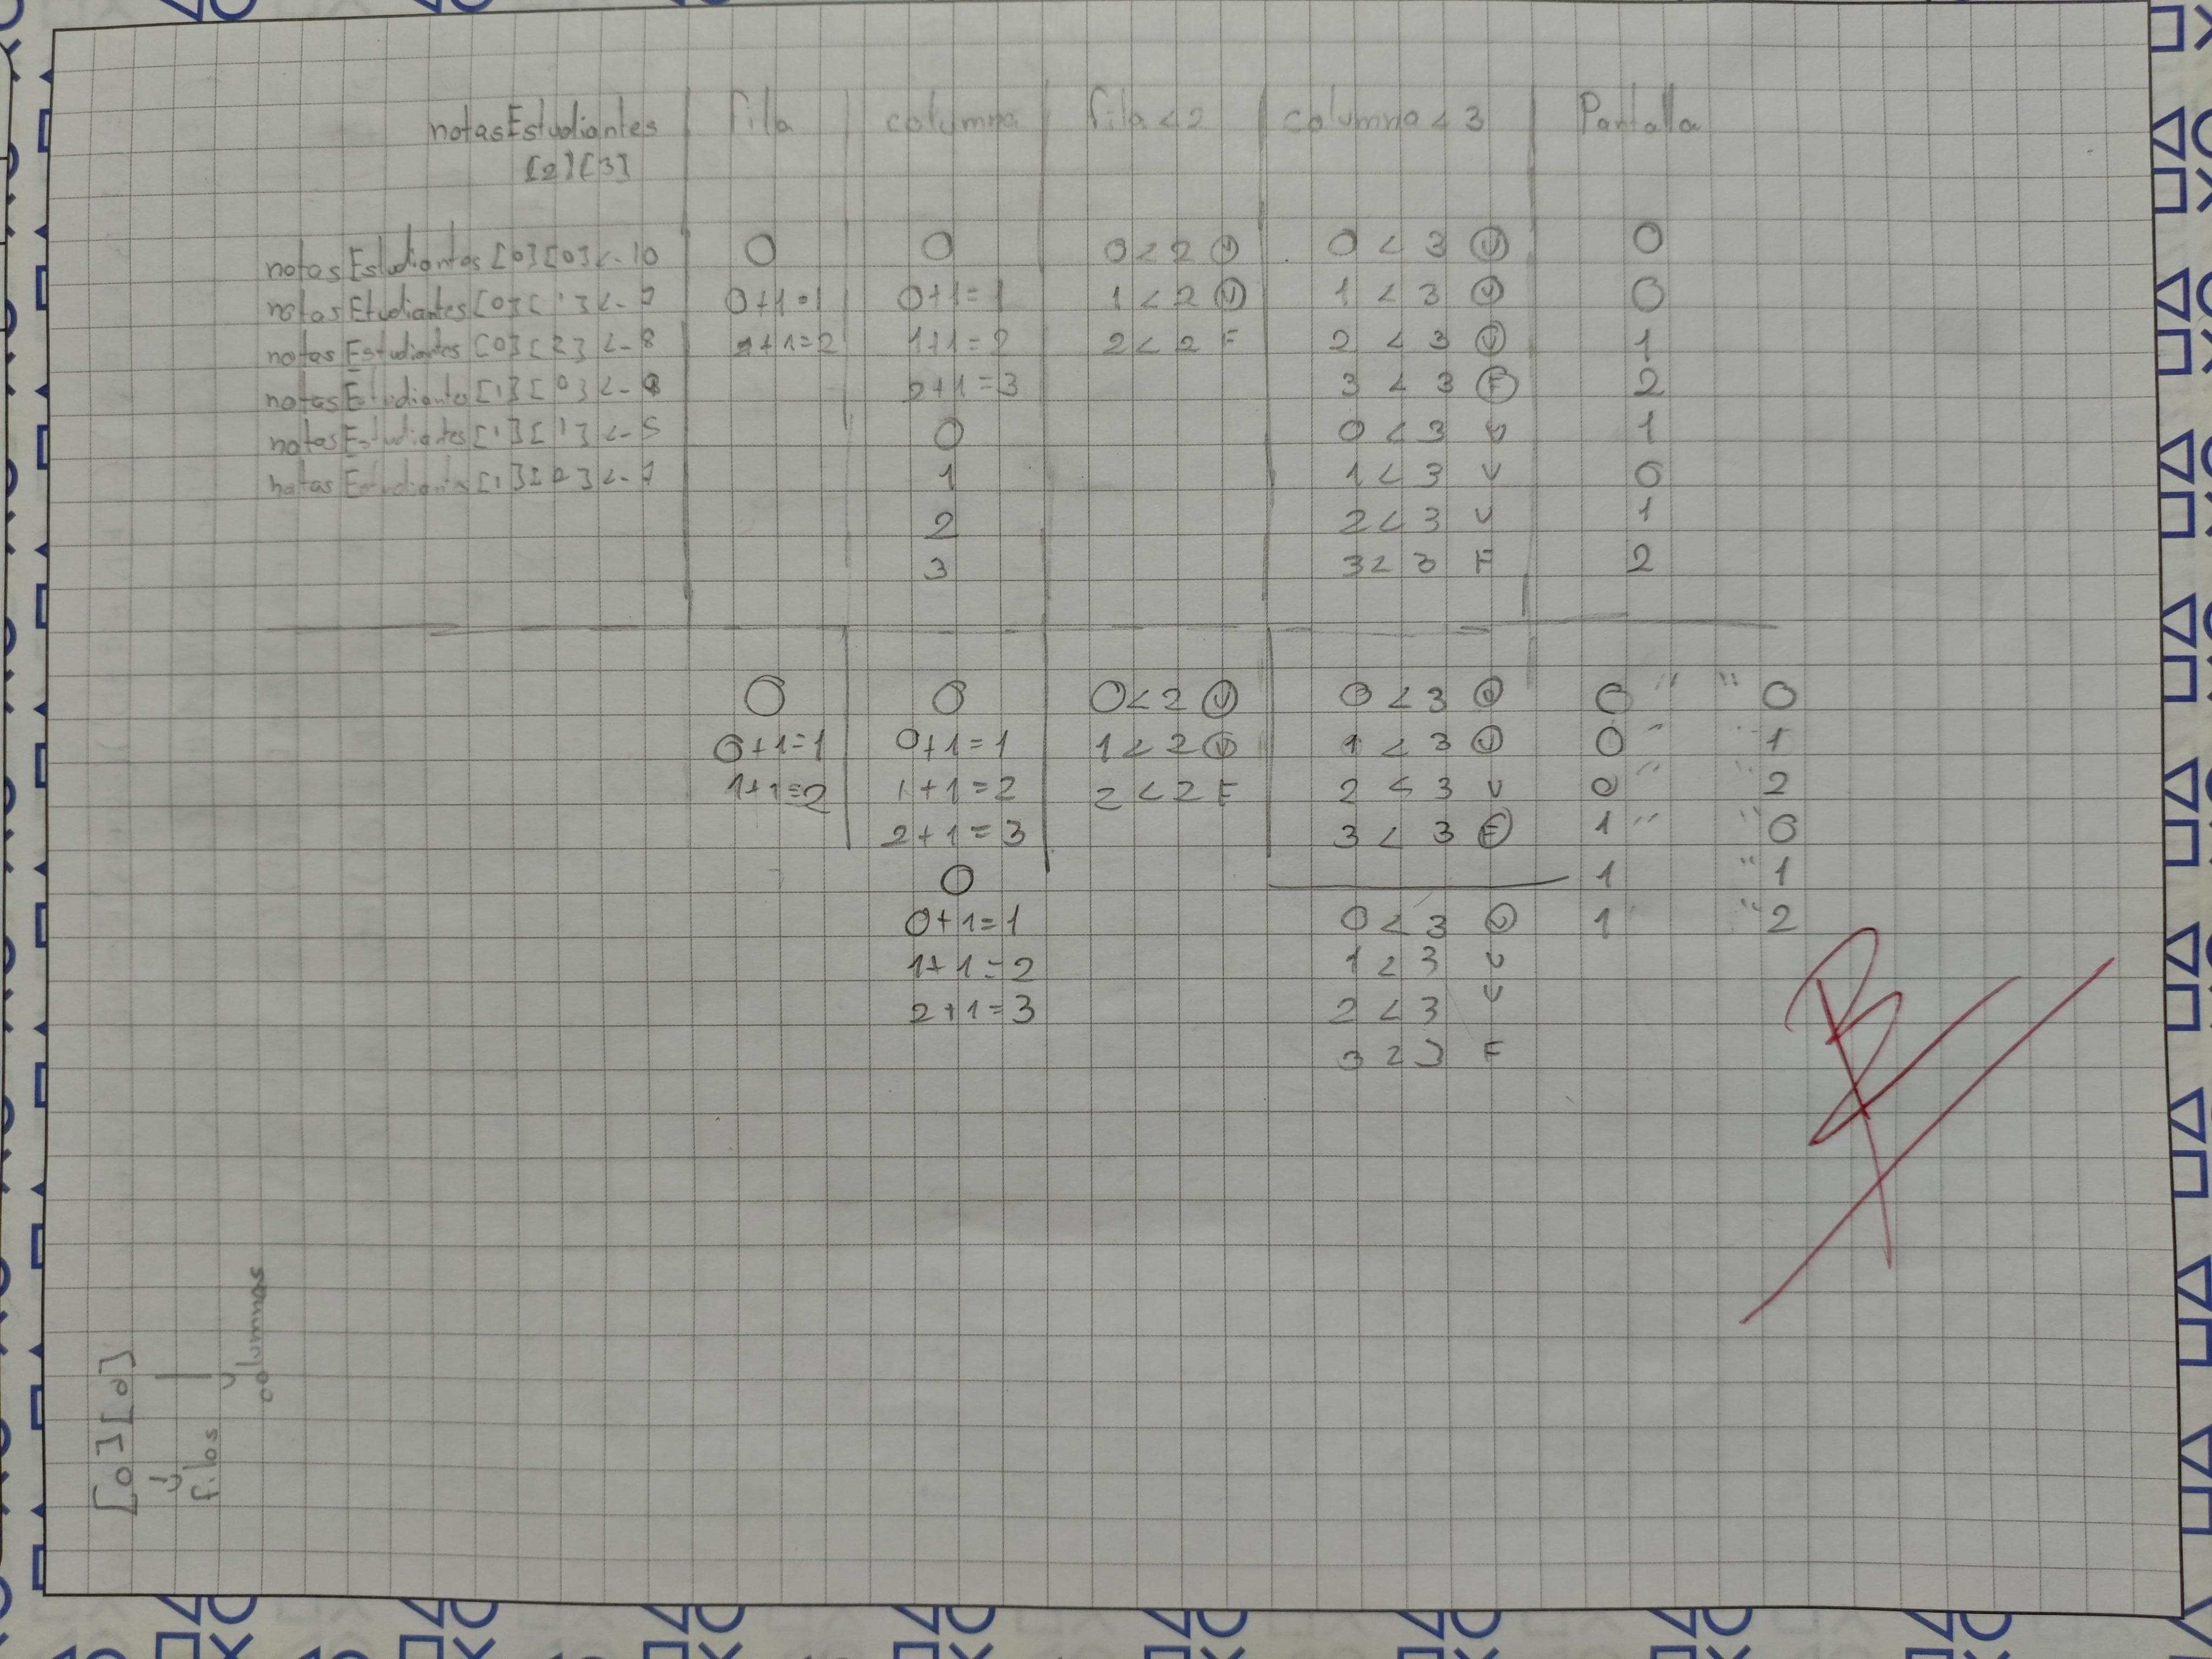 notasEstudiantes fila columna fila<2 columna<3 Pantalla
[2][3]
notasEstudiantes[0][0]<-10 0 0 0<2 V 0 < 3 V 0
notasEtudiantes[0][1]<-7 0+1=1 0+1=1 1<2 V 1 < 3 V 0
notasEstudiantes[0][2]<-8 1+1=2 1+1=2 2<2 F 2 < 3 V 1
notasEstudiantes[1][0]<- 2+1=3 3 < 3 F 2
notasEstudiantes[1][1]<-5 0 0 < 3 V 1
notasEstudiantes[1][2]<-7 1 1 < 3 V 0
2 2 < 3 V 1
3 3 < 3 F 2
0 0 0<2 V 0 < 3 V 0 " " 0
0+1=1 0+1=1 1<2 V 1 < 3 V 0 " " 1
1+1=2 1+1=2 2<2 F 2 < 3 V 0 " " 2
2+1=3 3 < 3 F 1 " " 0
0 1 " 1
0+1=1 0 < 3 V 1 " 2
1+1=2 1 < 3 V
2+1=3 2 < 3 V
3 < 3 F
[0][0]
filas
columnas